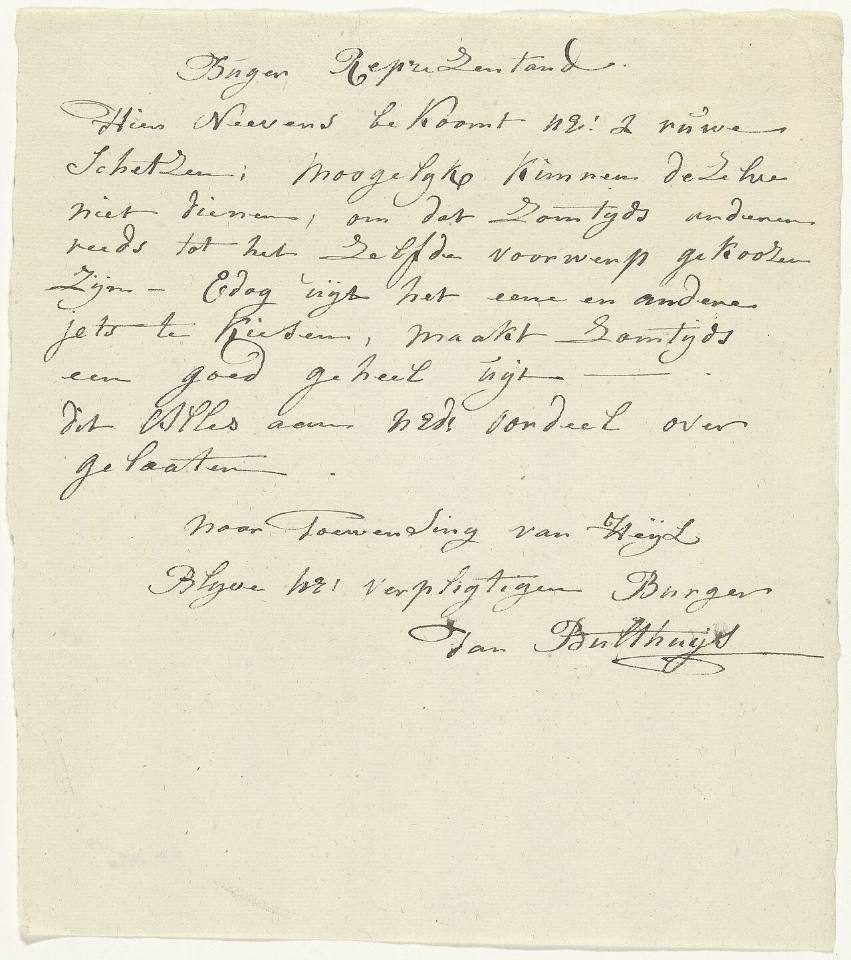 Burger Reprezentand.
Hier Neevens bekoomt UE: 2 ruwe
Schetzen; moogelyk kunnen dezelve
niet dienen, om dat Zomtyds anderen
reeds tot het Zelfde voorwerp gekoozen
Zijn — Edog uijt het eene en andere
jets te Kiesen, maakt Zomtyds
een goed geheel uijt — .
dit Alles aan UEds vordeel over
gelaaten .
naar Toewensing van Heijl
Blyve UE: verpligtigen Burger
Jan Bulthuijs